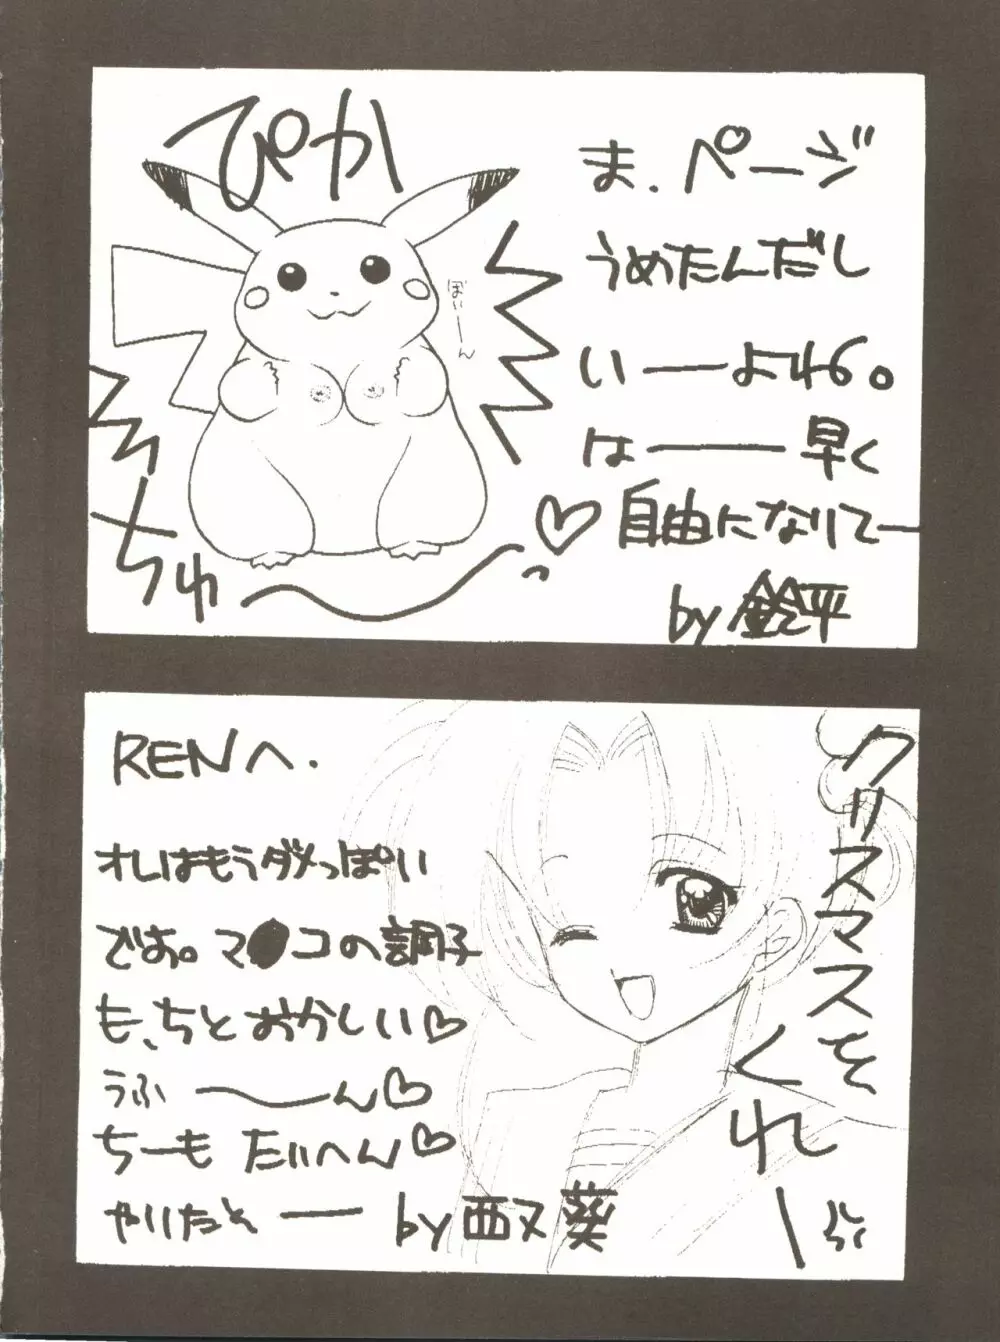 ぴか
ちゅ
ぼいーん
ま、ページ
うめたんだし
いーよね。
はー早く
自由になりてー
by 鈴平
RENへ.
オレはもうダメっぽい
です。マ●コの調子
も、ちとおかしい♡
うふーん♡
ちーも たいへん♡
やいたとー by 西又葵
クリスマスを
くれー